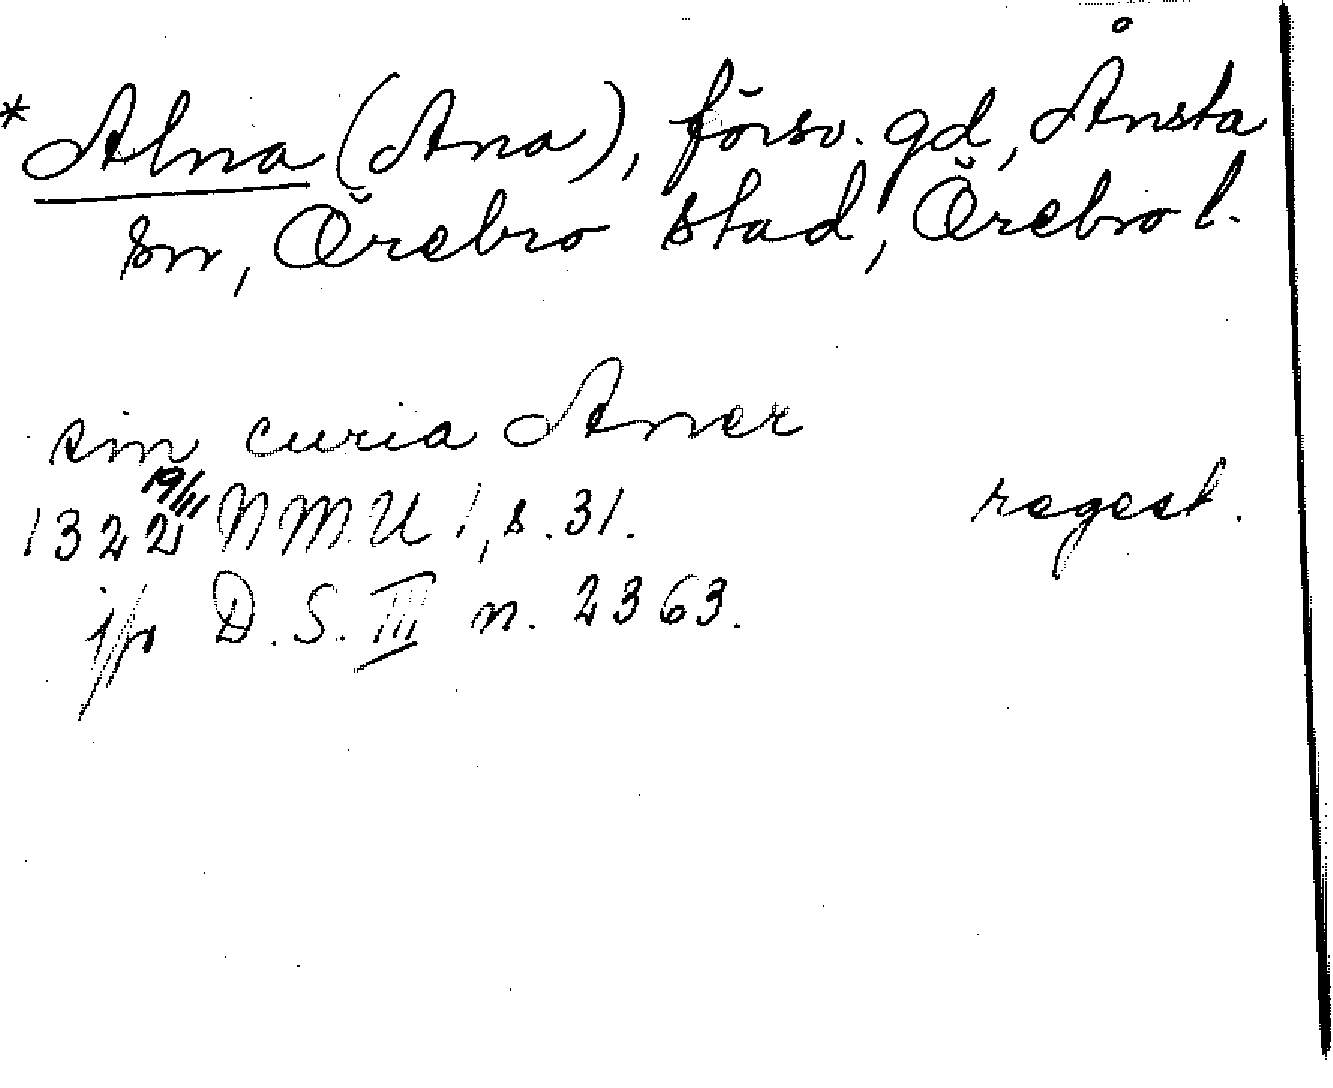 * Alna (Ana), försv. gd, Ånsta
sn, Örebro stad, Örebro l.
sin curia Aner
1322 19/11 NMU 1, s. 31. regest.
jfr D.S. III n. 2363.